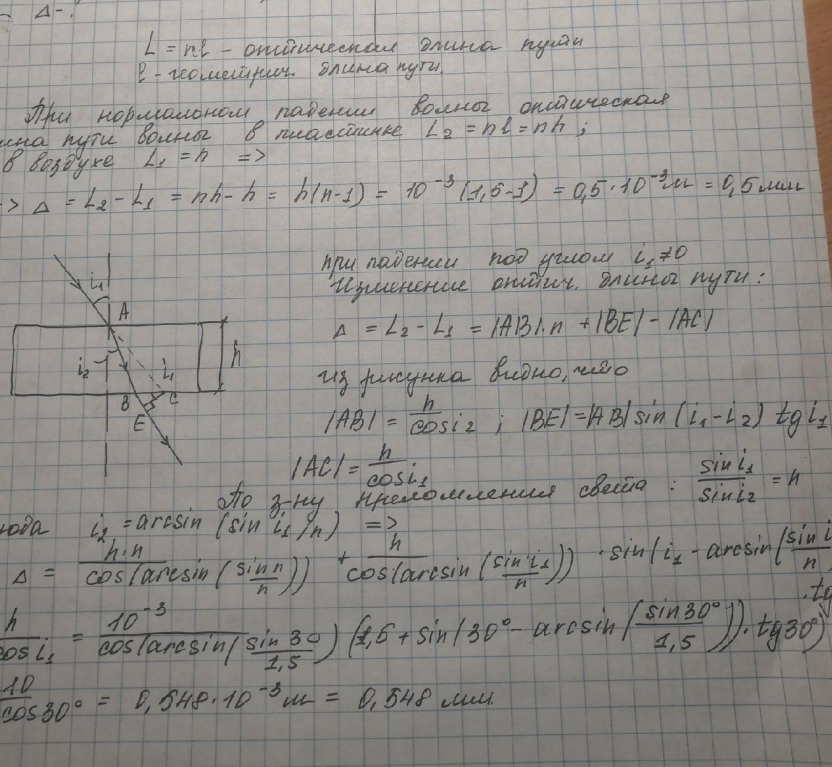 Δ - ?
L = nl - оптическая длина пути
l - геометрич. длина пути.
При нормальном падении волны оптическая
ина пути волны в пластинке L₂ = nl = nh ;
в воздухе L₁ = h =>
=> Δ = L₂ - L₁ = nh - h = h(n-1) = 10⁻³ (1,5-1) = 0,5·10⁻³ м = 0,5 мм
при падении под углом i₁ ≠ 0
Изменение оптич. длины пути :
Δ = L₂ - L₁ = |AB|·n + |BE| - |AC|
из рисунка видно, что
|AB| = h/cos i₂ ; |BE| = |AB| sin (i₁ - i₂) tg i₁
|AC| = h/cos i₁
По з-ну преломления света : sin i₁/sin i₂ = n
юда i₂ = arcsin (sin i₁/n) =>
Δ = h·n/cos(arcsin(sin n/n)) + h/cos(arcsin(sin i₁/n)) · sin(i₁ - arcsin(sin i/n
· tg
h/cos i₁ = 10⁻³/cos(arcsin(sin 30/1,5)) (1,5 + sin(30° - arcsin(sin 30°/1,5))· tg 30°)
10/cos 30° = 0,548·10⁻³ м = 0,548 мм.
i₁
A
i₂
i₁
h
B
C
E